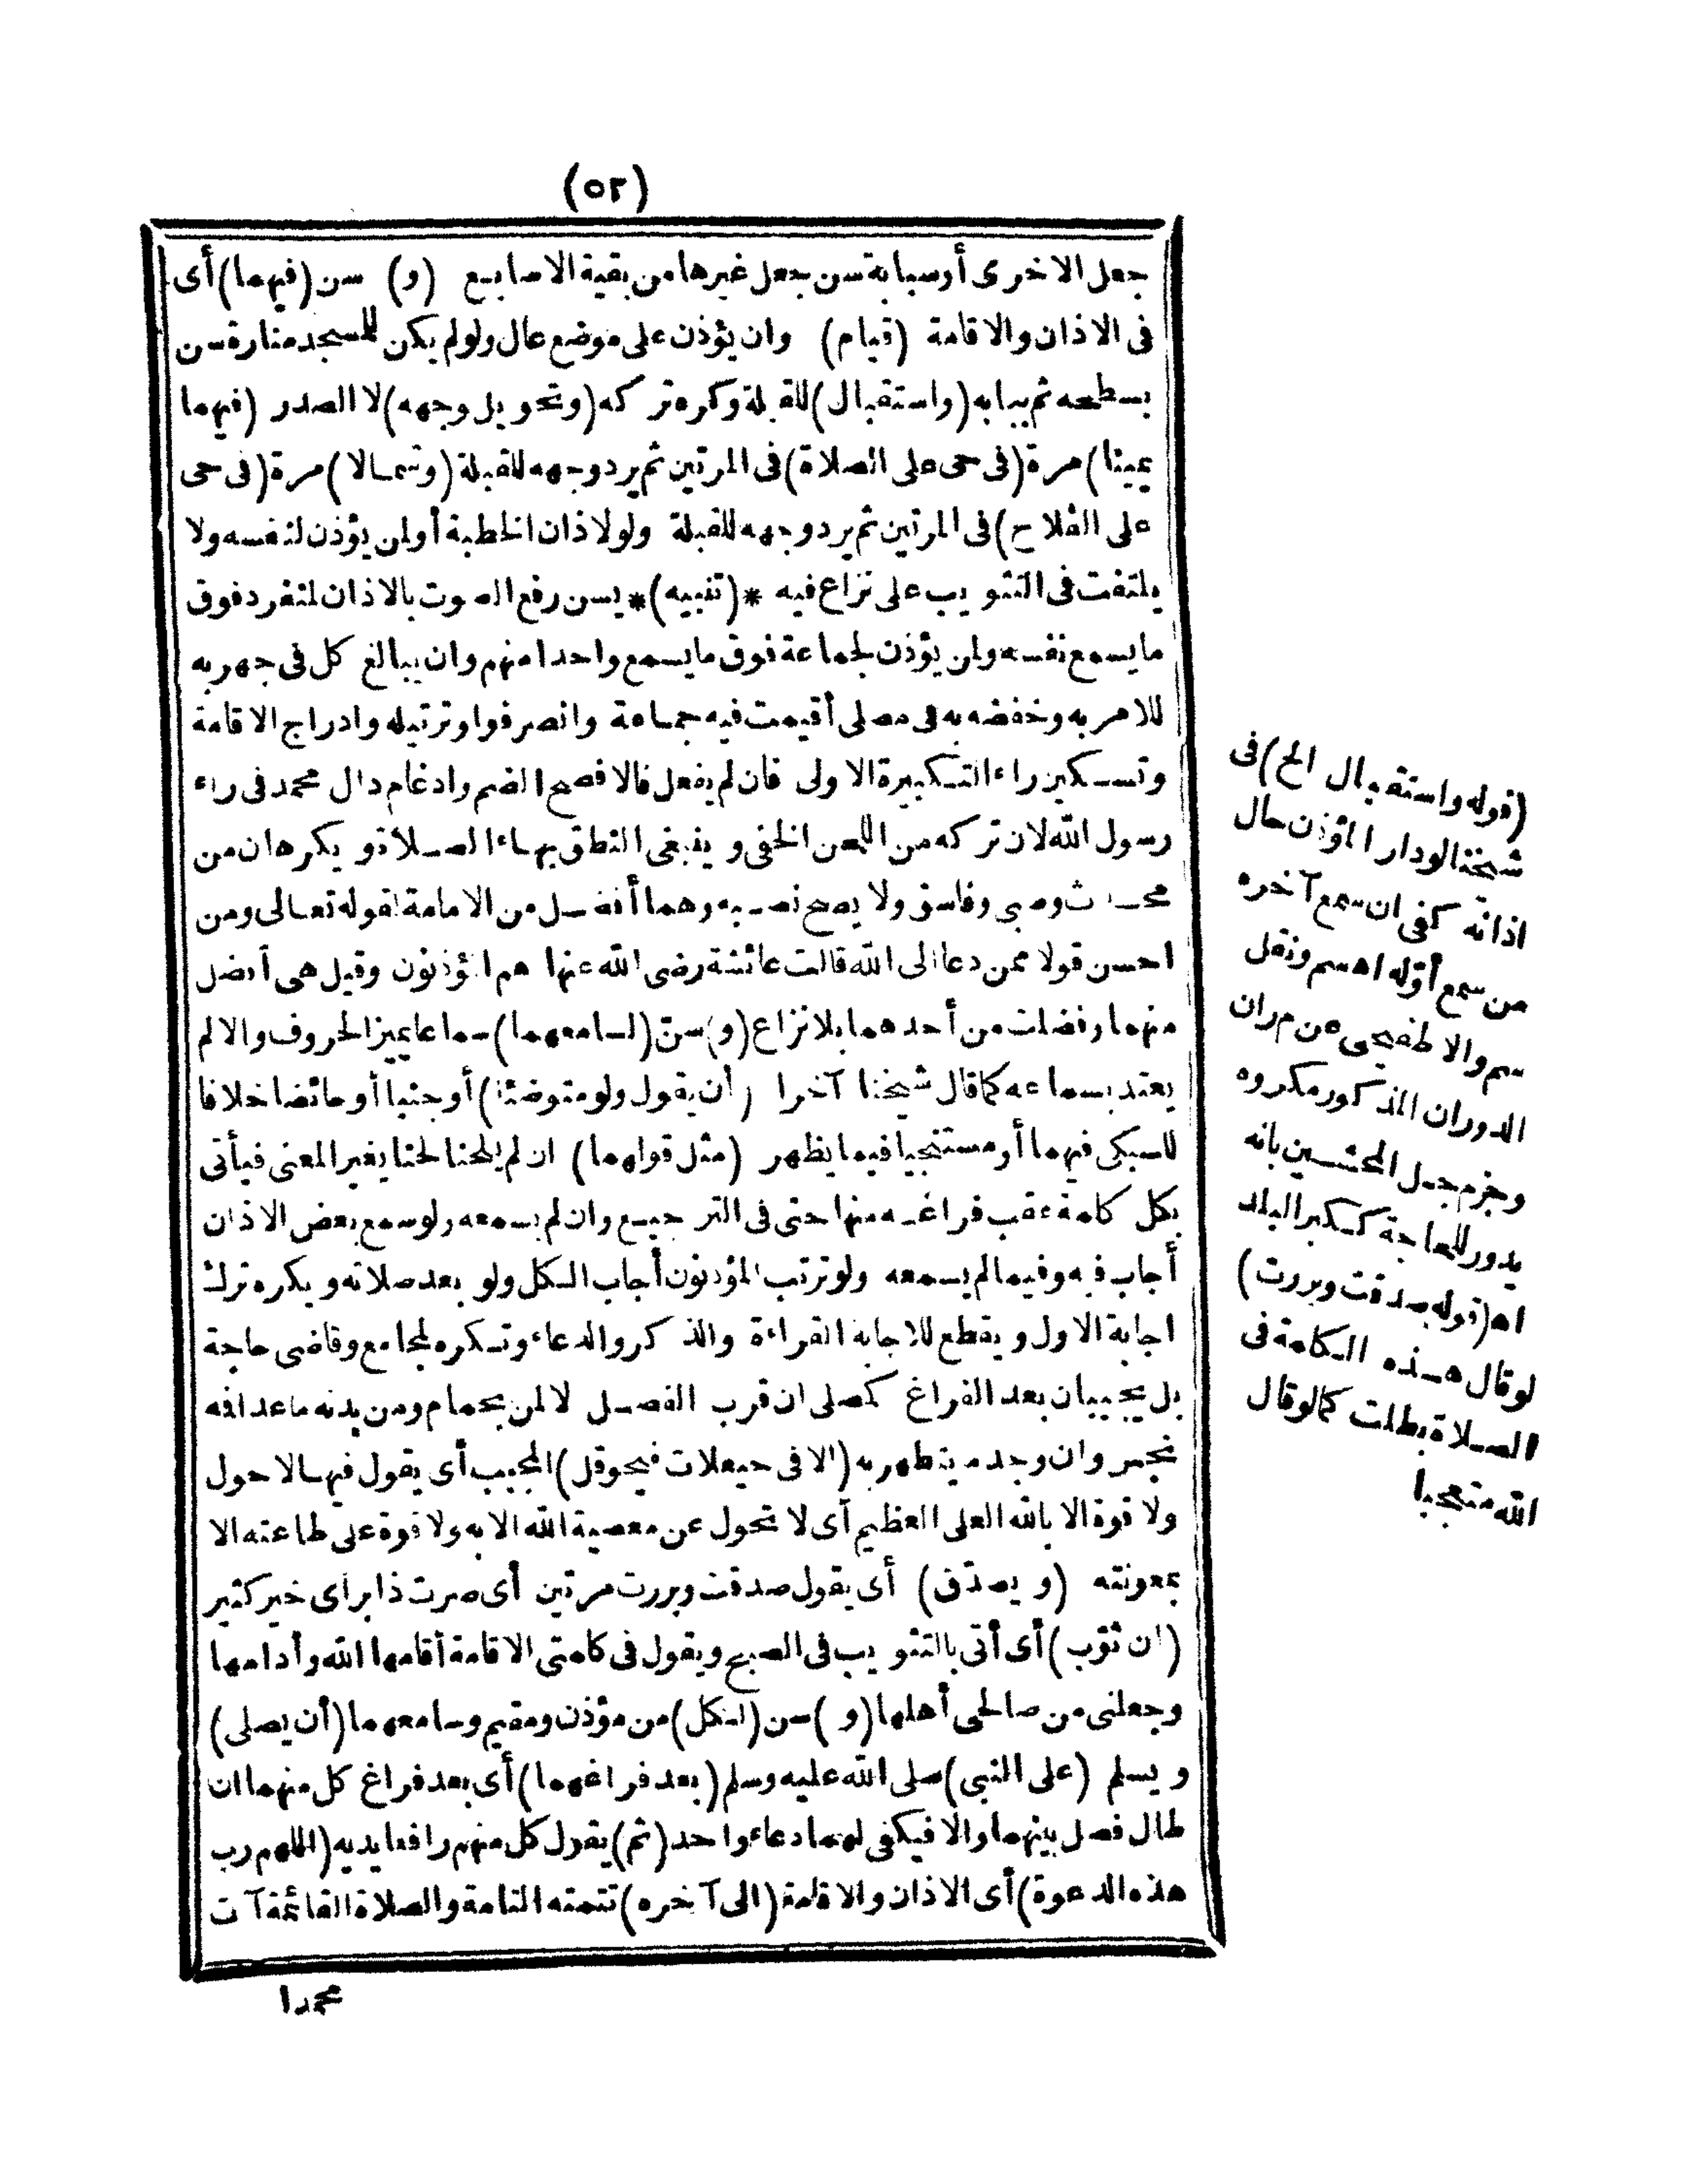 (٥٢)
جعل الاخرى أوسبابة سن جعل غيرها من بقية الاصابع (و) سن (فيهما) أى
فى الاذان والاقامة (قيام) وان يؤذن على موضع عال ولولم يكن للمسجد منارة سن
بسطحه ثم ببابه (واستقبال) للقبلة وكره تركه (وتحويل وجهه) لا الصدر (فيهما
يمينا) مرة (فى حى على الصلاة) فى المرتين ثم يرد وجهه للقبلة (وشمالا) مرة (فى حى
على الفلاح) فى المرتين ثم يرد وجهه للقبلة ولولاذان الخطبة أولمن يؤذن لنفسه ولا
يلتفت فى التثويب على نزاع فيه *(تنبيه)* يسن رفع الصوت بالاذان لمنفرد فوق
ما يسمع نفسه ولمن يؤذن لجماعة فوق ما يسمع واحدا منهم وان يبالغ كل فى جهر به
للامر به وخفضه به فى مصلى أقيمت فيه جماعة وانصرفوا وترتيله وادراج الاقامة
وتسكين راء التكبيرة الاولى فان لم يفعل فالافصح الضم وادغام دال محمد فى راء
رسول الله لان تركه من اللحن الخفى وينبغى النطق بهاء الصلاة ويكرهان من
محدث وصبى وفاسق ولا يصح نصبه وهما أفضل من الامامة لقوله تعالى ومن
احسن قولا ممن دعا الى الله قالت عائشة رضى الله عنها هم المؤذنون وقيل هى أفضل
منهما وفضلت من أحدهما بلا نزاع (و) سنّ (لسامعهما) سماعا يميز الحروف والالم
يعتد بسماعه كما قال شيخنا آخرا (أن يقول ولو متوضئا) أوجنبا أوحائضا خلافا
للسبكى فيهما أومستنجيا فيما يظهر (مثل قولهما) ان لم يلحنا لحنا يغير المعنى فيأتى
بكل كلمة عقب فراغه منها حتى فى الترجيع وان لم يسمعه ولوسمع بعض الاذان
أجاب فيه وفيما لم يسمعه ولوترتب المؤذنون أجاب الكل ولو بعد صلاته ويكره ترك
اجابة الاول ويقطع للاجابة القراءة والذكر والدعاء وتكره لمجامع وقاضى حاجة
بل يجيبان بعد الفراغ كمصلى ان قرب الفصل لا لمن بحمام ومن بدنه ماعدا فمه
نجس وان وجد ما يتطهر به (الا فى حيعلات فيحوقل) المجيب أى يقول فيها لاحول
ولا قوة الا بالله العلى العظيم أى لا تحول عن معصية الله الا به ولا قوة على طاعته الا
بمعونته (ويصدّق) أى يقول صدقت وبررت مرتين أى صرت ذا بر أى خير كثير
(ان ثوّب) أى أتى بالتثويب فى الصبح ويقول فى كلمتى الاقامة أقامها الله وأدامها
وجعلنى من صالحى أهلها (و) سن (لكل) من مؤذن ومقيم وسامعهما (أن يصلى)
ويسلم (على النبى) صلى الله عليه وسلم (بعد فراغهما) أى بعد فراغ كل منهما ان
طال فصل بينهما والا فيكفى لهما دعاء واحد (ثم) يقول كل منهم رافعا يديه (اللهم رب
هذه الدعوة) أى الاذان والاقامة (الى آخره) تتمته التامة والصلاة القائمة آت
محمدا
(قوله واستقبال الخ) فى
شيخنا لودار المؤذن حال
اذانه كفى ان سمع آخره
من سمع أوّله اه سم ونقل
سم والاطفيحى عن م ر ان
الدوران المذكور مكروه
وجزم جل المحشين بانه
يدور للحاجة ككبر البلد
اه (قوله صدقت وبررت)
لوقال هذه الكلمة فى
الصلاة بطلت كما لوقال
الله متعجبا